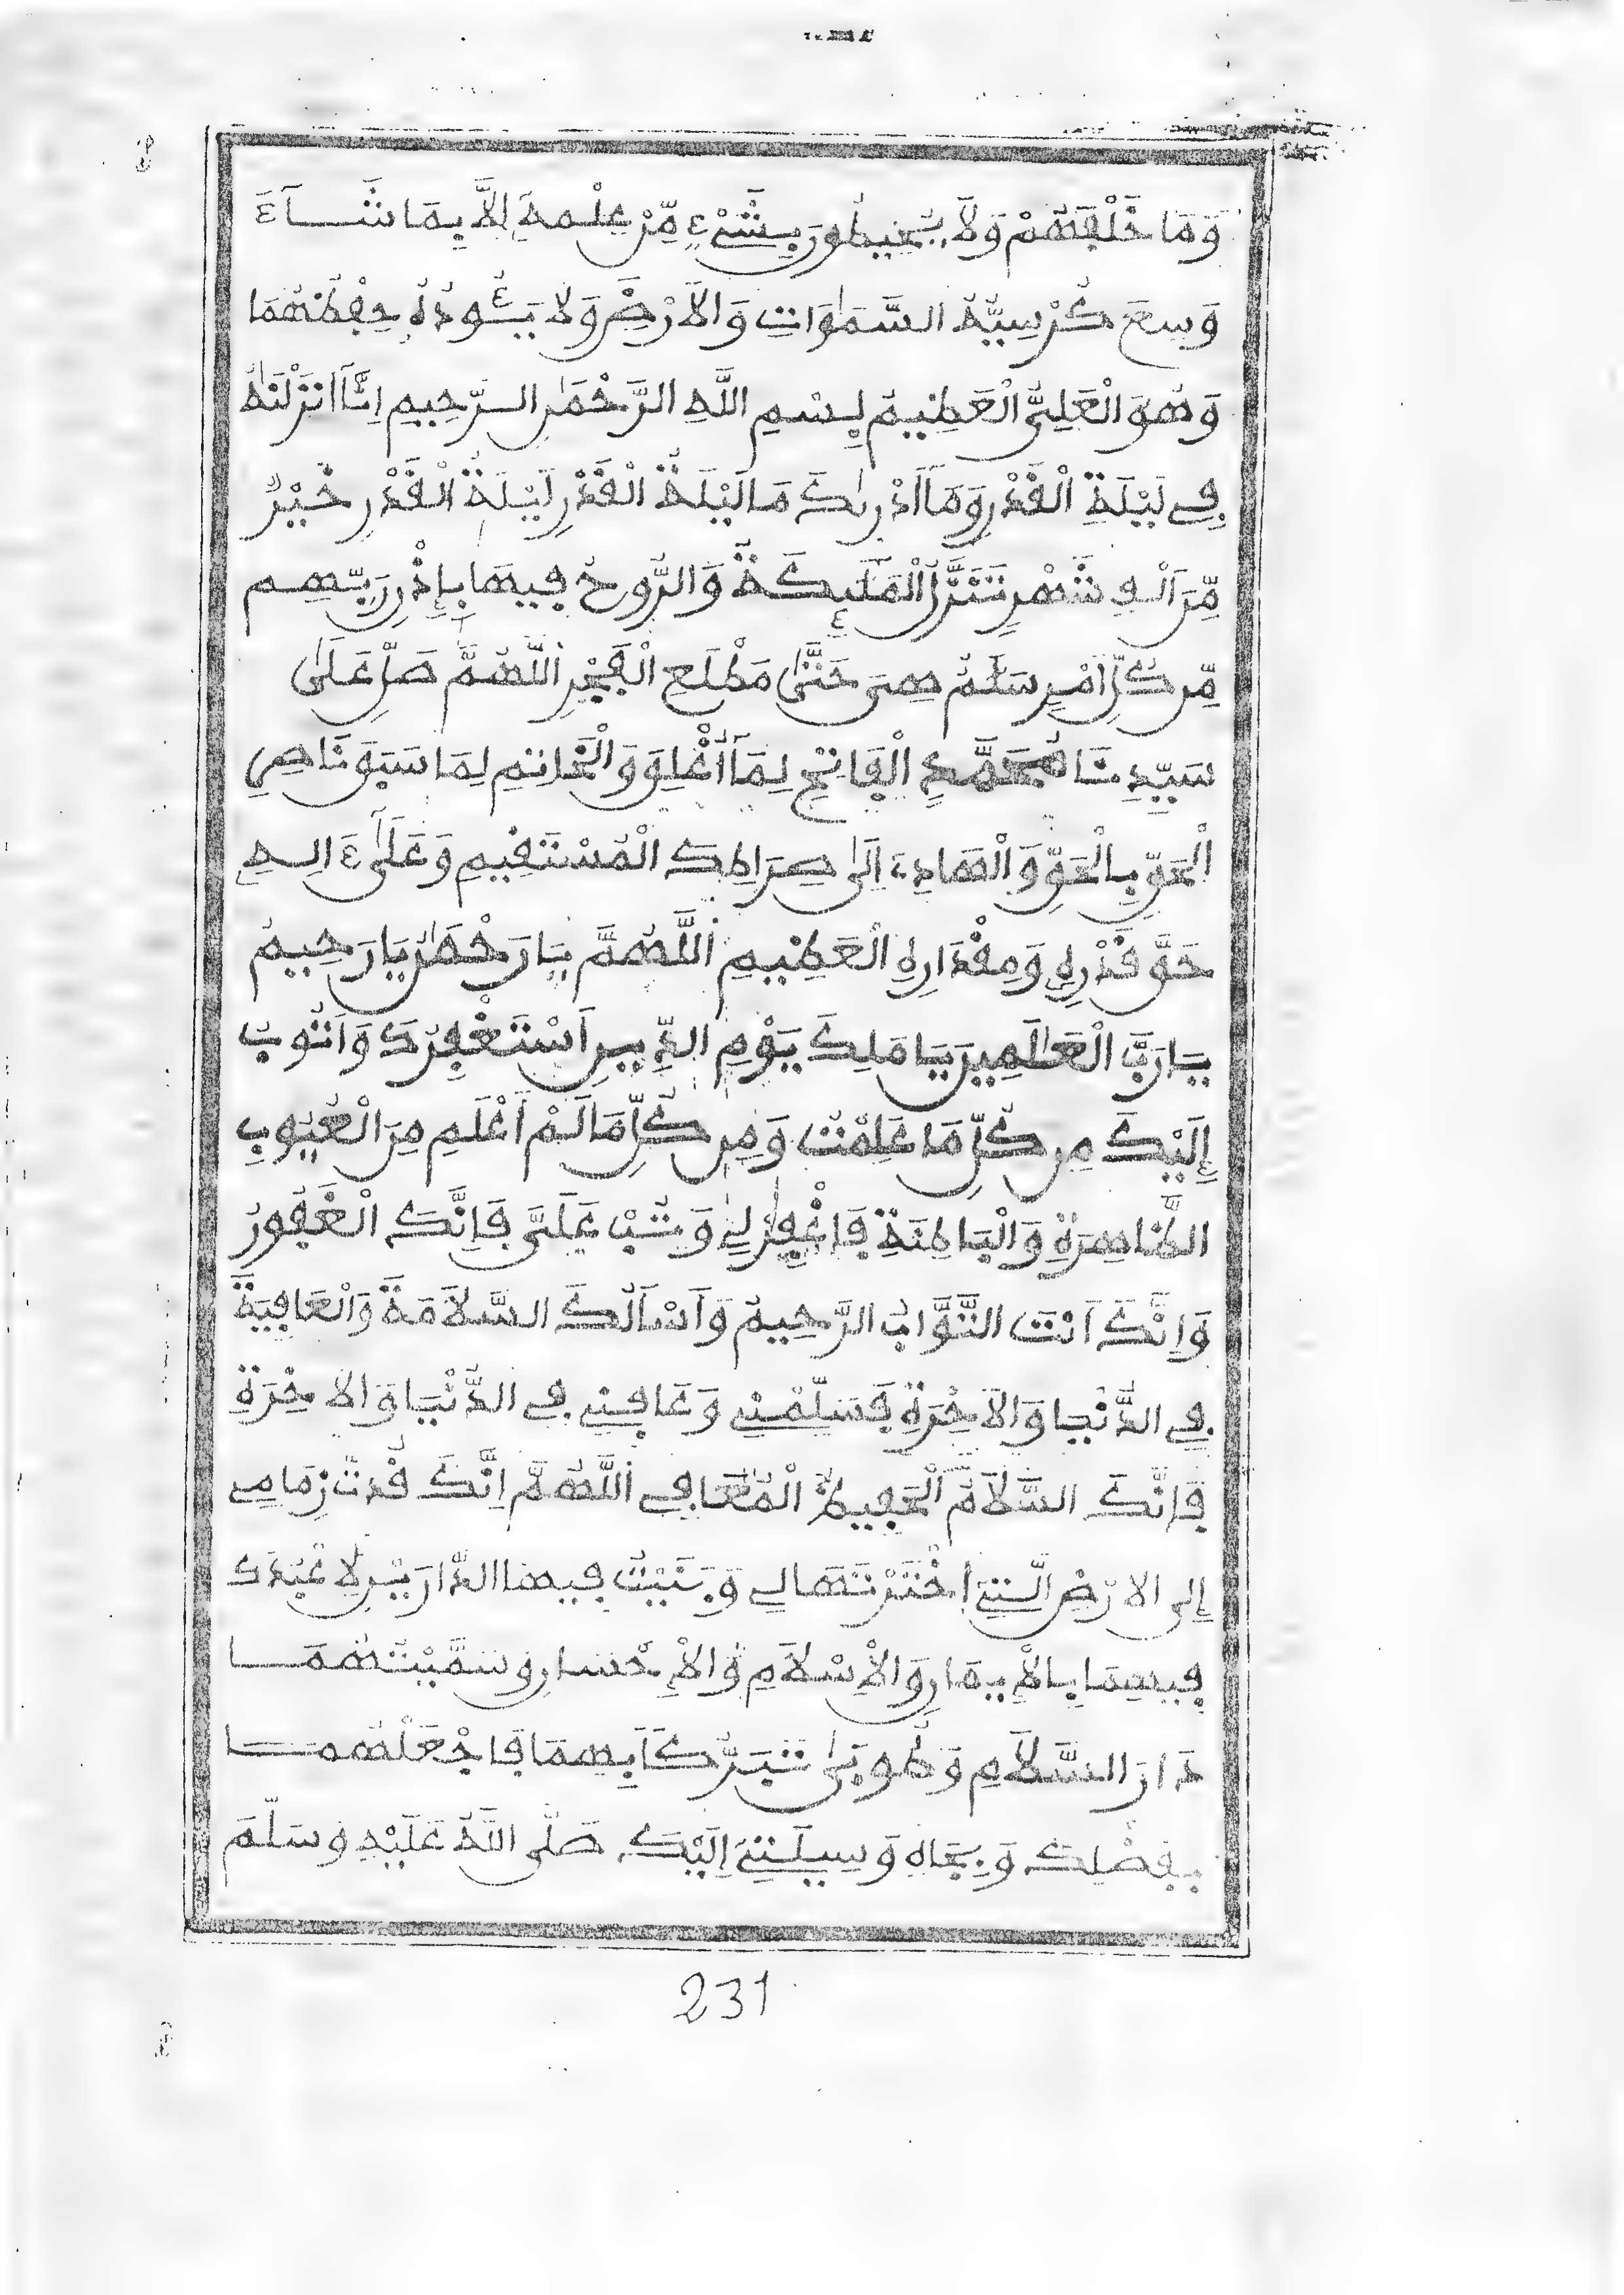 وَمَا خَلْفَهُمْ وَلَا يُحِيطُونَ بِشَيْءٍ مِّنْ عِلْمِهِ إِلَّا بِمَا شَآءَ
وَسِعَ كُرْسِيُّهُ السَّمَٰوَاتِ وَالْأَرْضَ وَلَا يَـُٔودُهُ حِفْظُهُمَا
وَهُوَ الْعَلِيُّ الْعَظِيمُ بِسْمِ اللَّهِ الرَّحْمَٰنِ الرَّحِيمِ إِنَّآ أَنزَلْنَٰهُ
فِي لَيْلَةِ الْقَدْرِ وَمَآ أَدْرَىٰكَ مَا لَيْلَةُ الْقَدْرِ لَيْلَةُ الْقَدْرِ خَيْرٌ
مِّنَ أَلْفِ شَهْرٍ تَنَزَّلُ الْمَلَٰٓئِكَةُ وَالرُّوحُ فِيهَا بِإِذْنِ رَبِّهِم
مِّن كُلِّ أَمْرٍ سَلَٰمٌ هِيَ حَتَّىٰ مَطْلَعِ الْفَجْرِ اللَّهُمَّ صَلِّ عَلَىٰ
سَيِّدِنَا مُحَمَّدٍ الْفَاتِحِ لِمَا أُغْلِقَ وَالْخَاتِمِ لِمَا سَبَقَ نَاصِرِ
الْحَقِّ بِالْحَقِّ وَالْهَادِي إِلَىٰ صِرَاطِكَ الْمُسْتَقِيمِ وَعَلَىٰٓ ءَالِهِ
حَقَّ قَدْرِهِ وَمِقْدَارِهِ الْعَظِيمِ اللَّهُمَّ يَا رَحْمَٰنُ يَا رَحِيمُ
يَا رَبَّ الْعَٰلَمِينَ يَا مَلِكَ يَوْمِ الدِّينِ أَسْتَغْفِرُكَ وَأَتُوبُ
إِلَيْكَ مِن كُلِّ مَا عَلِمْتُ وَمِن كُلِّ مَا لَمْ أَعْلَمِ مِنَ الْعُيُوبِ
الظَّاهِرَةِ وَالْبَاطِنَةِ فَاغْفِرْ لِي وَتُبْ عَلَيَّ فَإِنَّكَ الْغَفُورُ
وَإِنَّكَ أَنْتَ التَّوَّابُ الرَّحِيمُ وَأَسْأَلُكَ السَّلَامَةَ وَالْعَافِيَةَ
فِي الدُّنْيَا وَالْآخِرَةِ فَسَلِّمْنِي وَعَافِنِي فِي الدُّنْيَا وَالْآخِرَةِ
فَإِنَّكَ السَّلَامُ الْحَفِيظُ الْمُعَافِي اللَّهُمَّ إِنَّكَ قُدْتَ زِمَامِي
إِلَى الْأَرْضِ الَّتِي اخْتَرْتَهَا لِي وَبَنَيْتُ فِيهَا الدَّارَيْنِ لِأَعْبُدَكَ
فِيهِمَا بِالْإِيمَانِ وَالْإِسْلَامِ وَالْإِحْسَانِ وَسَمَّيْتُهُمَا
دَارَ السَّلَامِ وَطُوبَىٰ تَبَرُّكاً بِهِمَا فَاجْعَلْهُمَا
بِفَضْلِكَ وَبِجَاهِ وَسِيلَتِي إِلَيْكَ صَلَّى اللَّهُ عَلَيْهِ وَسَلَّمَ
231